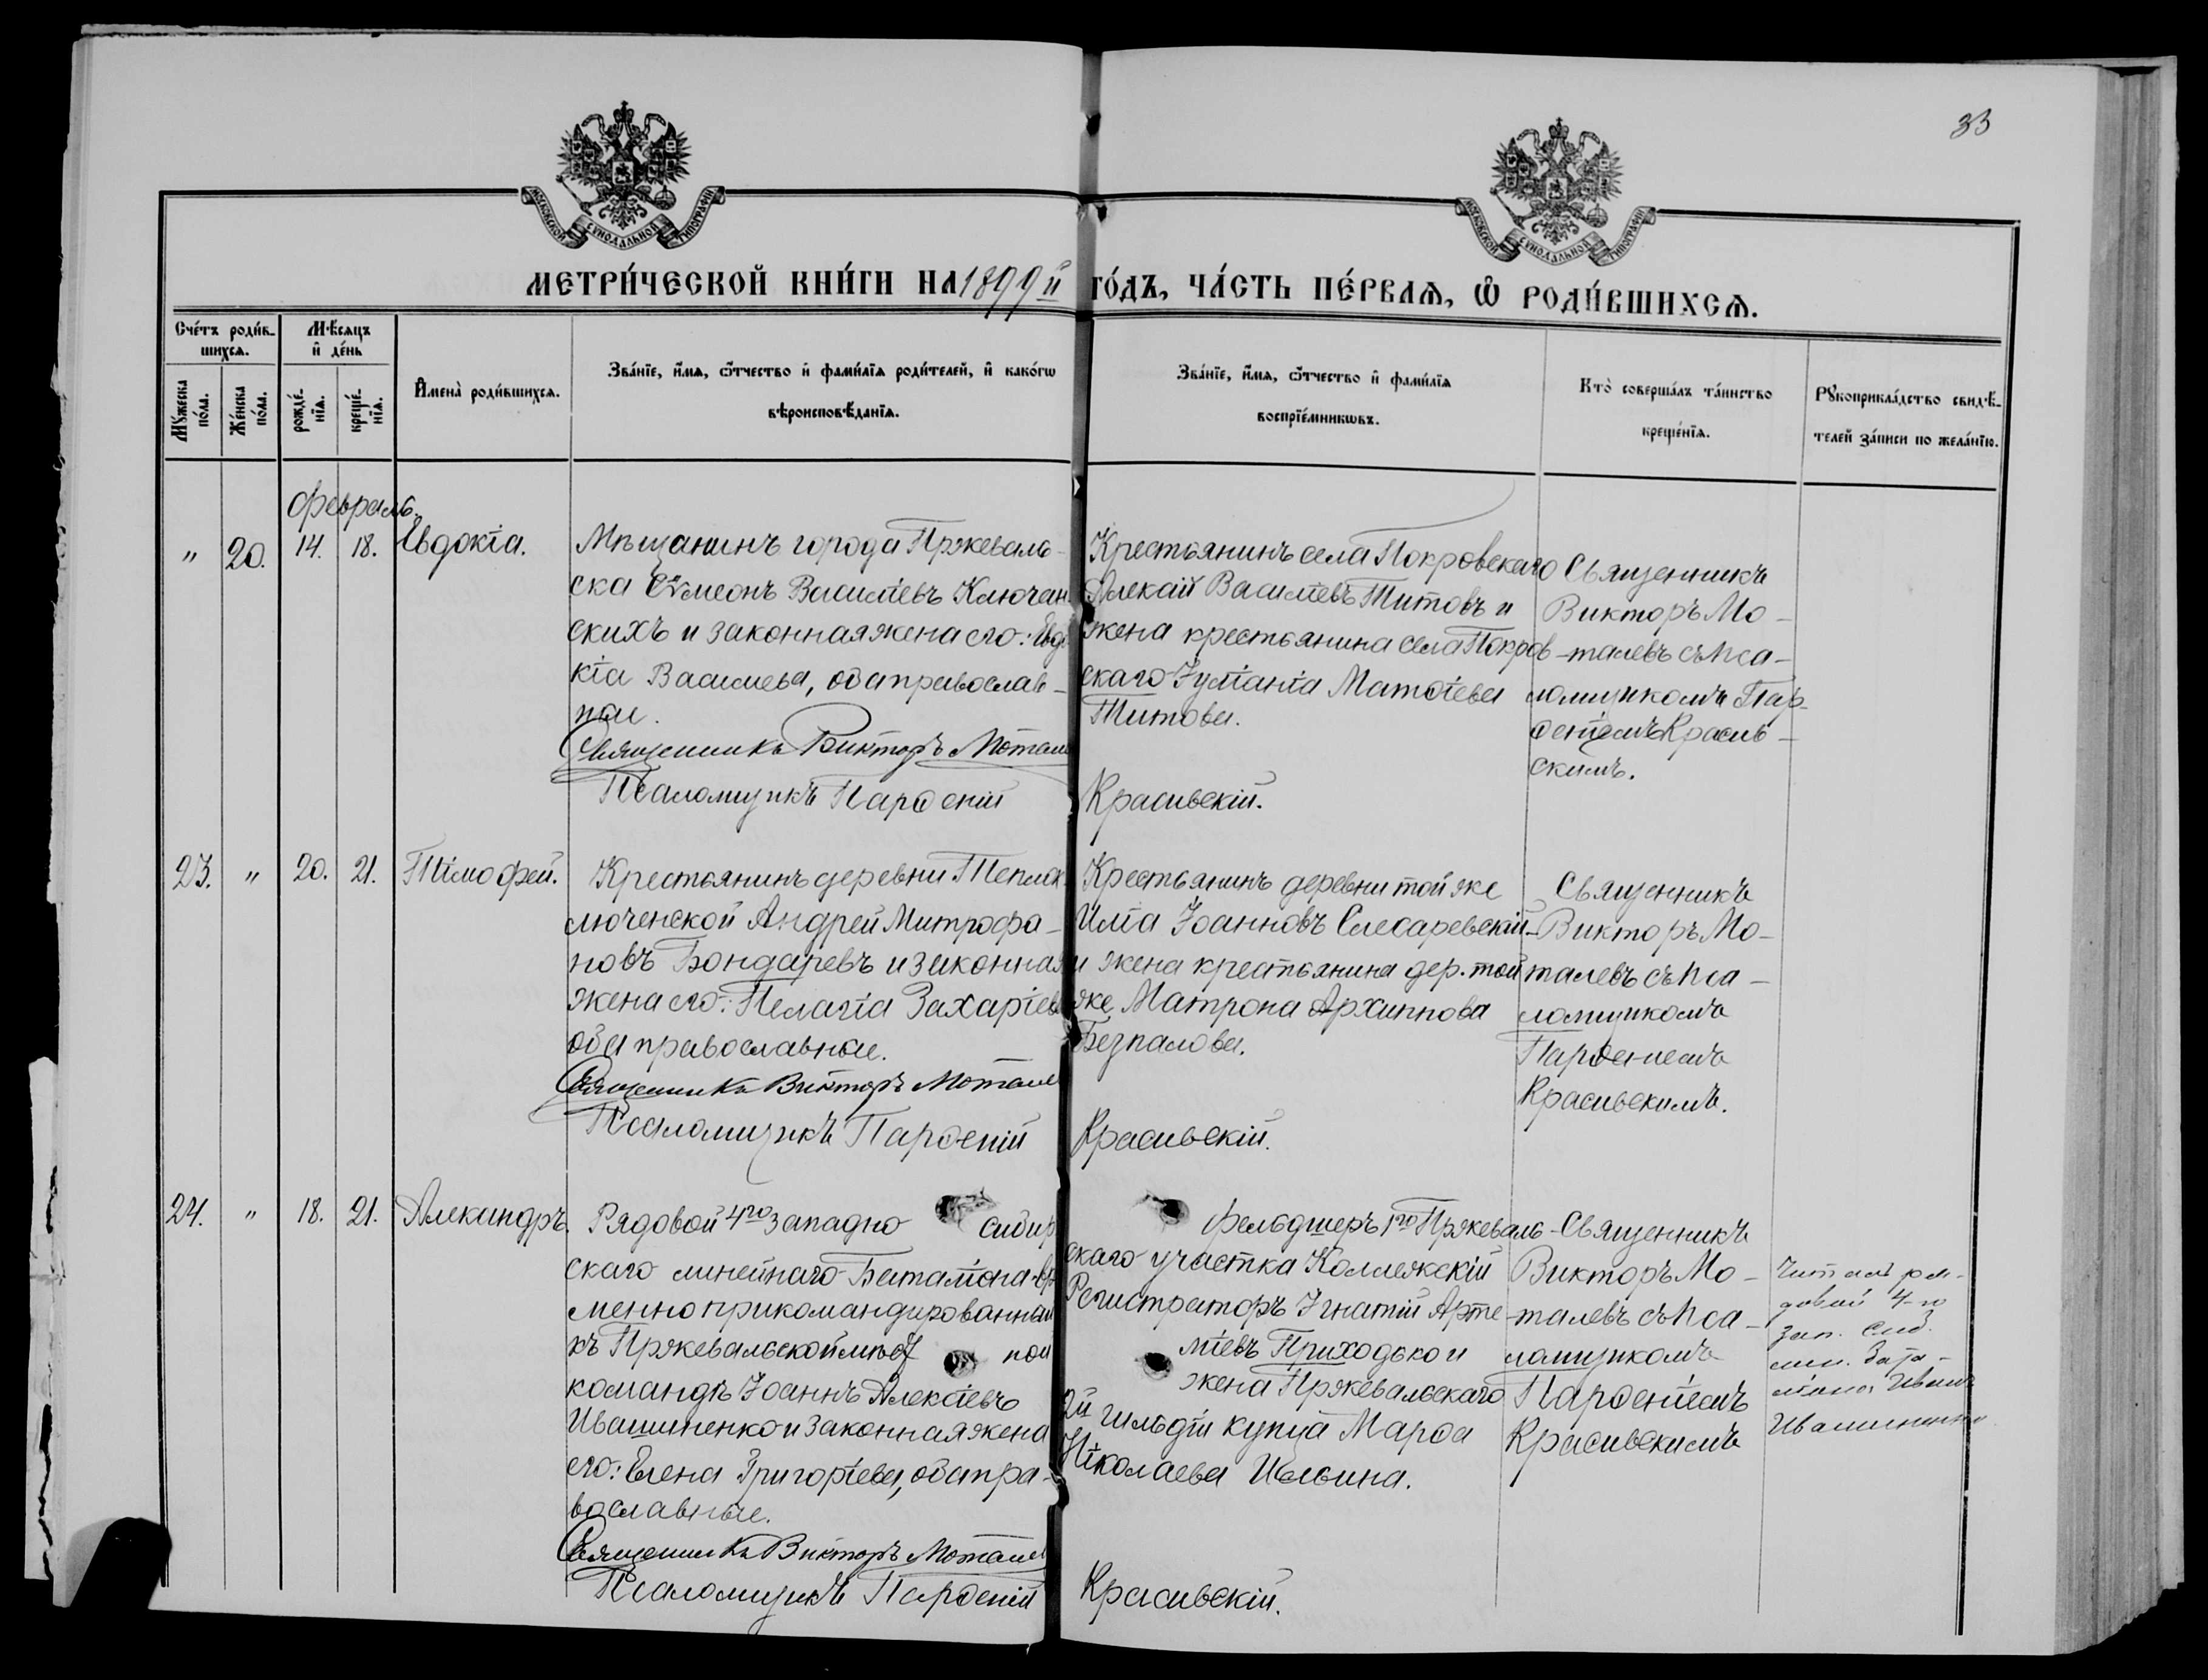 33
МОСКОВСКОЙ СУНОДАЛЬНОЙ ТИПОГРАФІИ
МОСКОВСКОЙ СУНОДАЛЬНОЙ ТИПОГРАФІИ
МЕТРИ́ЧЕСКОЙ КНИ́ГИ НА 1899й ГО́ДЪ, ЧА́СТЬ ПЕ́РВАѦ, Ѿ РОДИ́ВШИХСѦ.
Сче́тъ роди́в-
шихсѧ.
Мѣ́сѧцъ
и҆ де́нь
Мꙋ́жеска
по́ла.
Же́нска
по́ла.
рожде́-
нїѧ.
креще́-
нїѧ.
И҆мена̀ роди́вшихсѧ.
Зва́нїе, и҆́мѧ, ѻ҆́тчество и҆ фами́лїѧ роди́телей, и҆ како́гѡ
вѣроисповѣ́данїѧ.
Зва́нїе, и҆́мѧ, ѻ҆́тчество и҆ фами́лїѧ
воспрїе́мникѡвъ.
Кто̀ соверша́лъ та́инство
креще́нїѧ.
Рꙋкоприкла́дство свидѣ́-
телей за́писи по жела́нїю.
Февраль.
" 20. 14. 18. Евдокіа.
Мѣщанинъ города Пржеваль-
ска Сѵмеонъ Василіевъ Ключан
скихъ и законная жена его: Евдо
кіа Васильева, оба православ-
ные.
Священникъ Викторъ Мотале
Псаломщикъ Парѳеній
Крестьянинъ села Покровскаго
Алексій Василіевъ Титовъ и
жена крестьянина села Покров
скаго Іуліаніа Матѳіева
Титова.
Красивскій.
Священникъ
Викторъ Мо-
талевъ съ пса-
ломщикомъ Пар-
ѳеніемъ Красив-
скимъ.
23. " 20. 21. Тімофей.
Крестьянинъ деревни Теплок
люченской Андрей Митрофа-
новъ Бондаревъ и законная
жена его: Пелагіа Захаріев
оба православные.
Священникъ Викторъ Мотале
Псаломщикъ Парѳеній
Крестьянинъ деревни той же
Иліа Іоанновъ Слесаревскій
и жена крестьянина дер. той
же Матрона Архиппова
Безпалова.
Красивскій.
Священникъ
Викторъ Мо-
талевъ съ пса-
ломщикомъ
Парѳеніемъ
Красивскимъ.
24. " 18. 21. Александръ.
Рядовой 4го западно сибир
скаго линейнаго Баталіона вр
менно прикомандированный
къ Пржевальской мѣст ной
командѣ Іоаннъ Алексіевъ
Ивашиненко и законная жена
его: Елена Григоріева, оба пра-
вославные.
Священникъ Викторъ Мотале
Псаломщикъ Парѳеній
Фельдшеръ 1го Пржеваль-
скаго участка Коллежскій
Регистраторъ Игнатій Арте-
міевъ Приходько и
жена Пржевальскаго
2й гильдіи купца Марѳа
Ніколаева Ильина.
Красивскій.
Священникъ
Викторъ Мо-
талевъ съ пса-
ломщикомъ
Парѳеніемъ
Красивскимъ
Читалъ ря-
довой 4-го
зап. Сиб.
лин. Бата-
ліона Иванъ
Ивашиненко